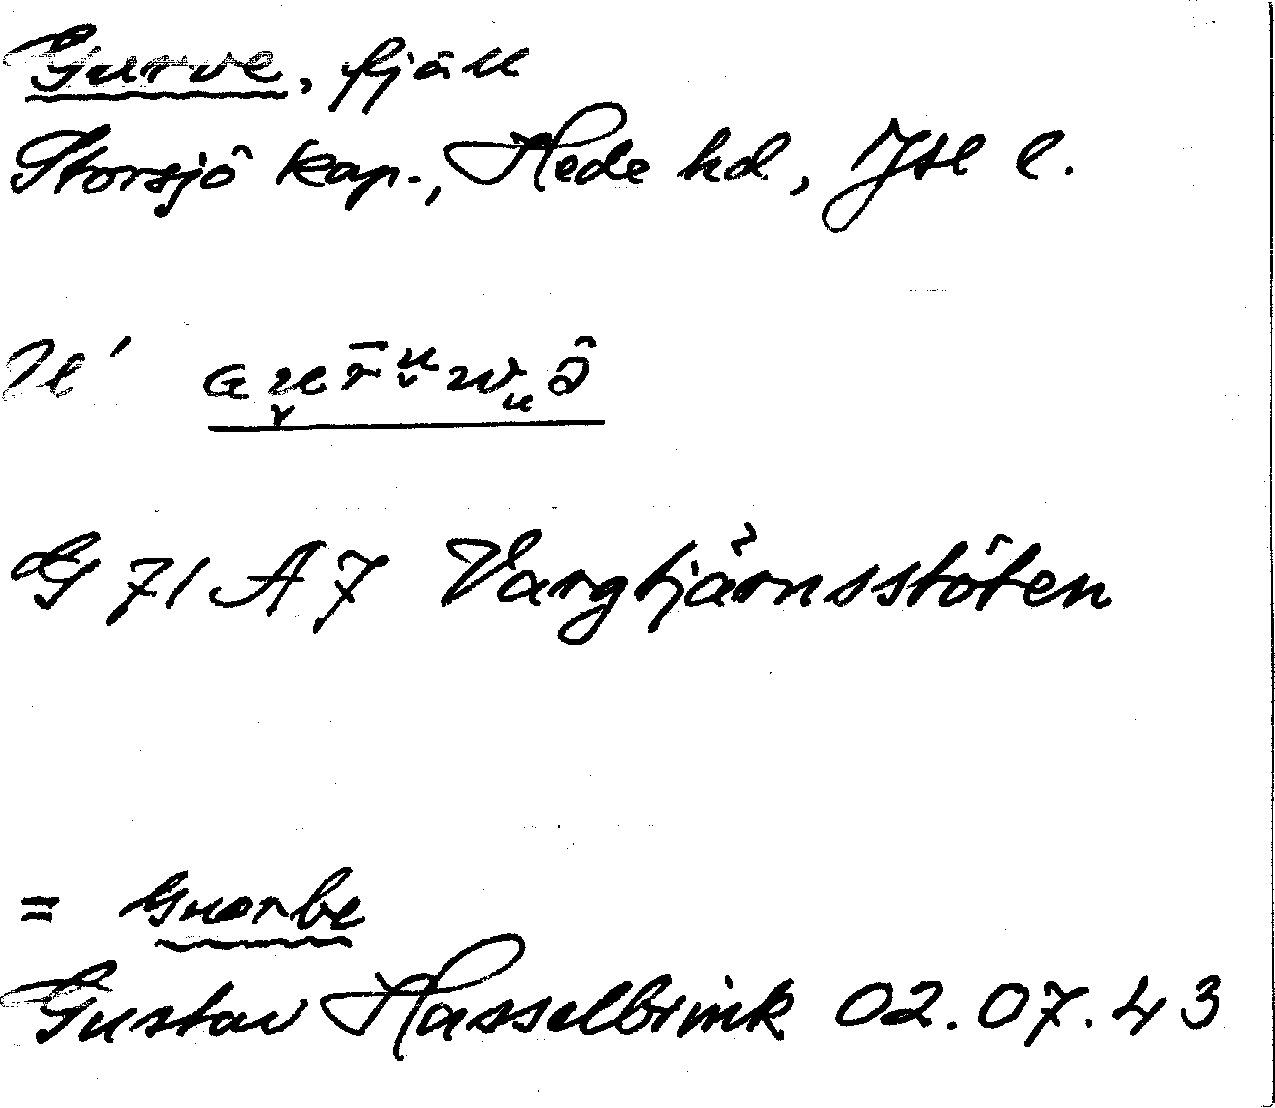 Gurve, fjäll
Storsjö kap., Hede hd, Jtl l.
= Guorbe
G 71 A 7 Vargtjärnsstöten
Gustav Hasselbrink 02.07.43